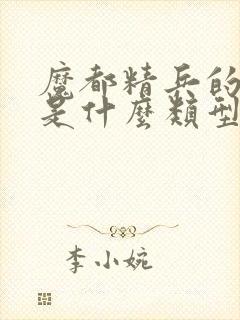 魔都精兵的
是什麼類型
李小婉